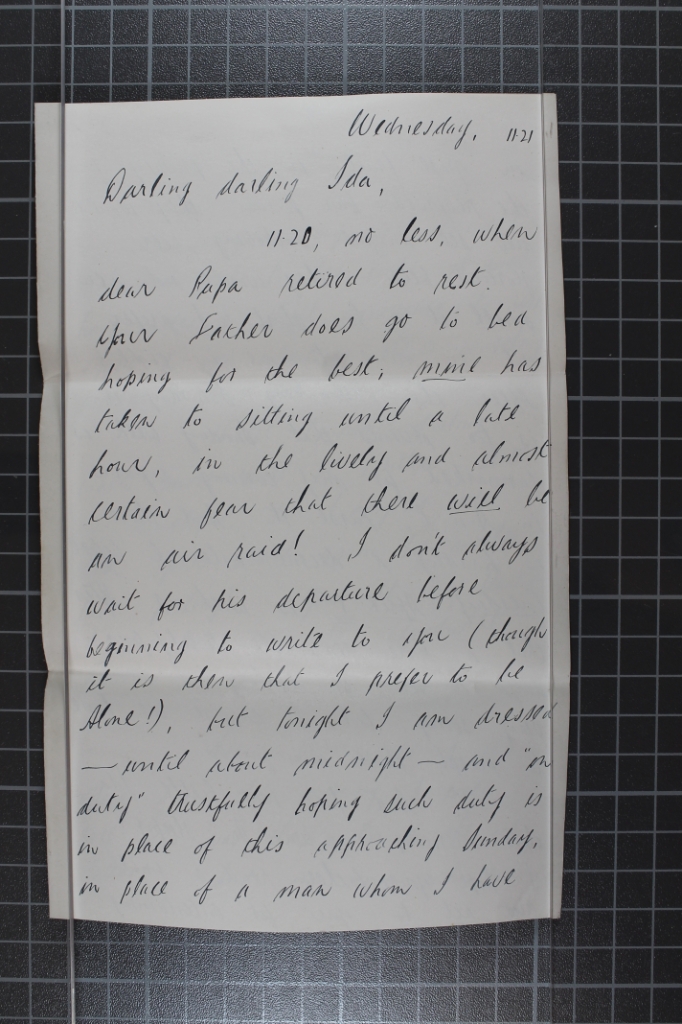 Wednesday, 11.21
Darling darling Ida,
11.20, no less, when
dear Papa retired to rest.
Your Father does go to bed
hoping for the best; mine has
taken to sitting until a late
hour, in the lively and almost
certain fear that there will be
an air raid! I don't always
wait for his departure before
beginning to write to you (though
it is then that I prefer to be
Alone!), but tonight I am dressed
— until about midnight — and "on
duty" trustfully hoping such duty is
in place of this approaching Sunday,
in place of a man whom I have